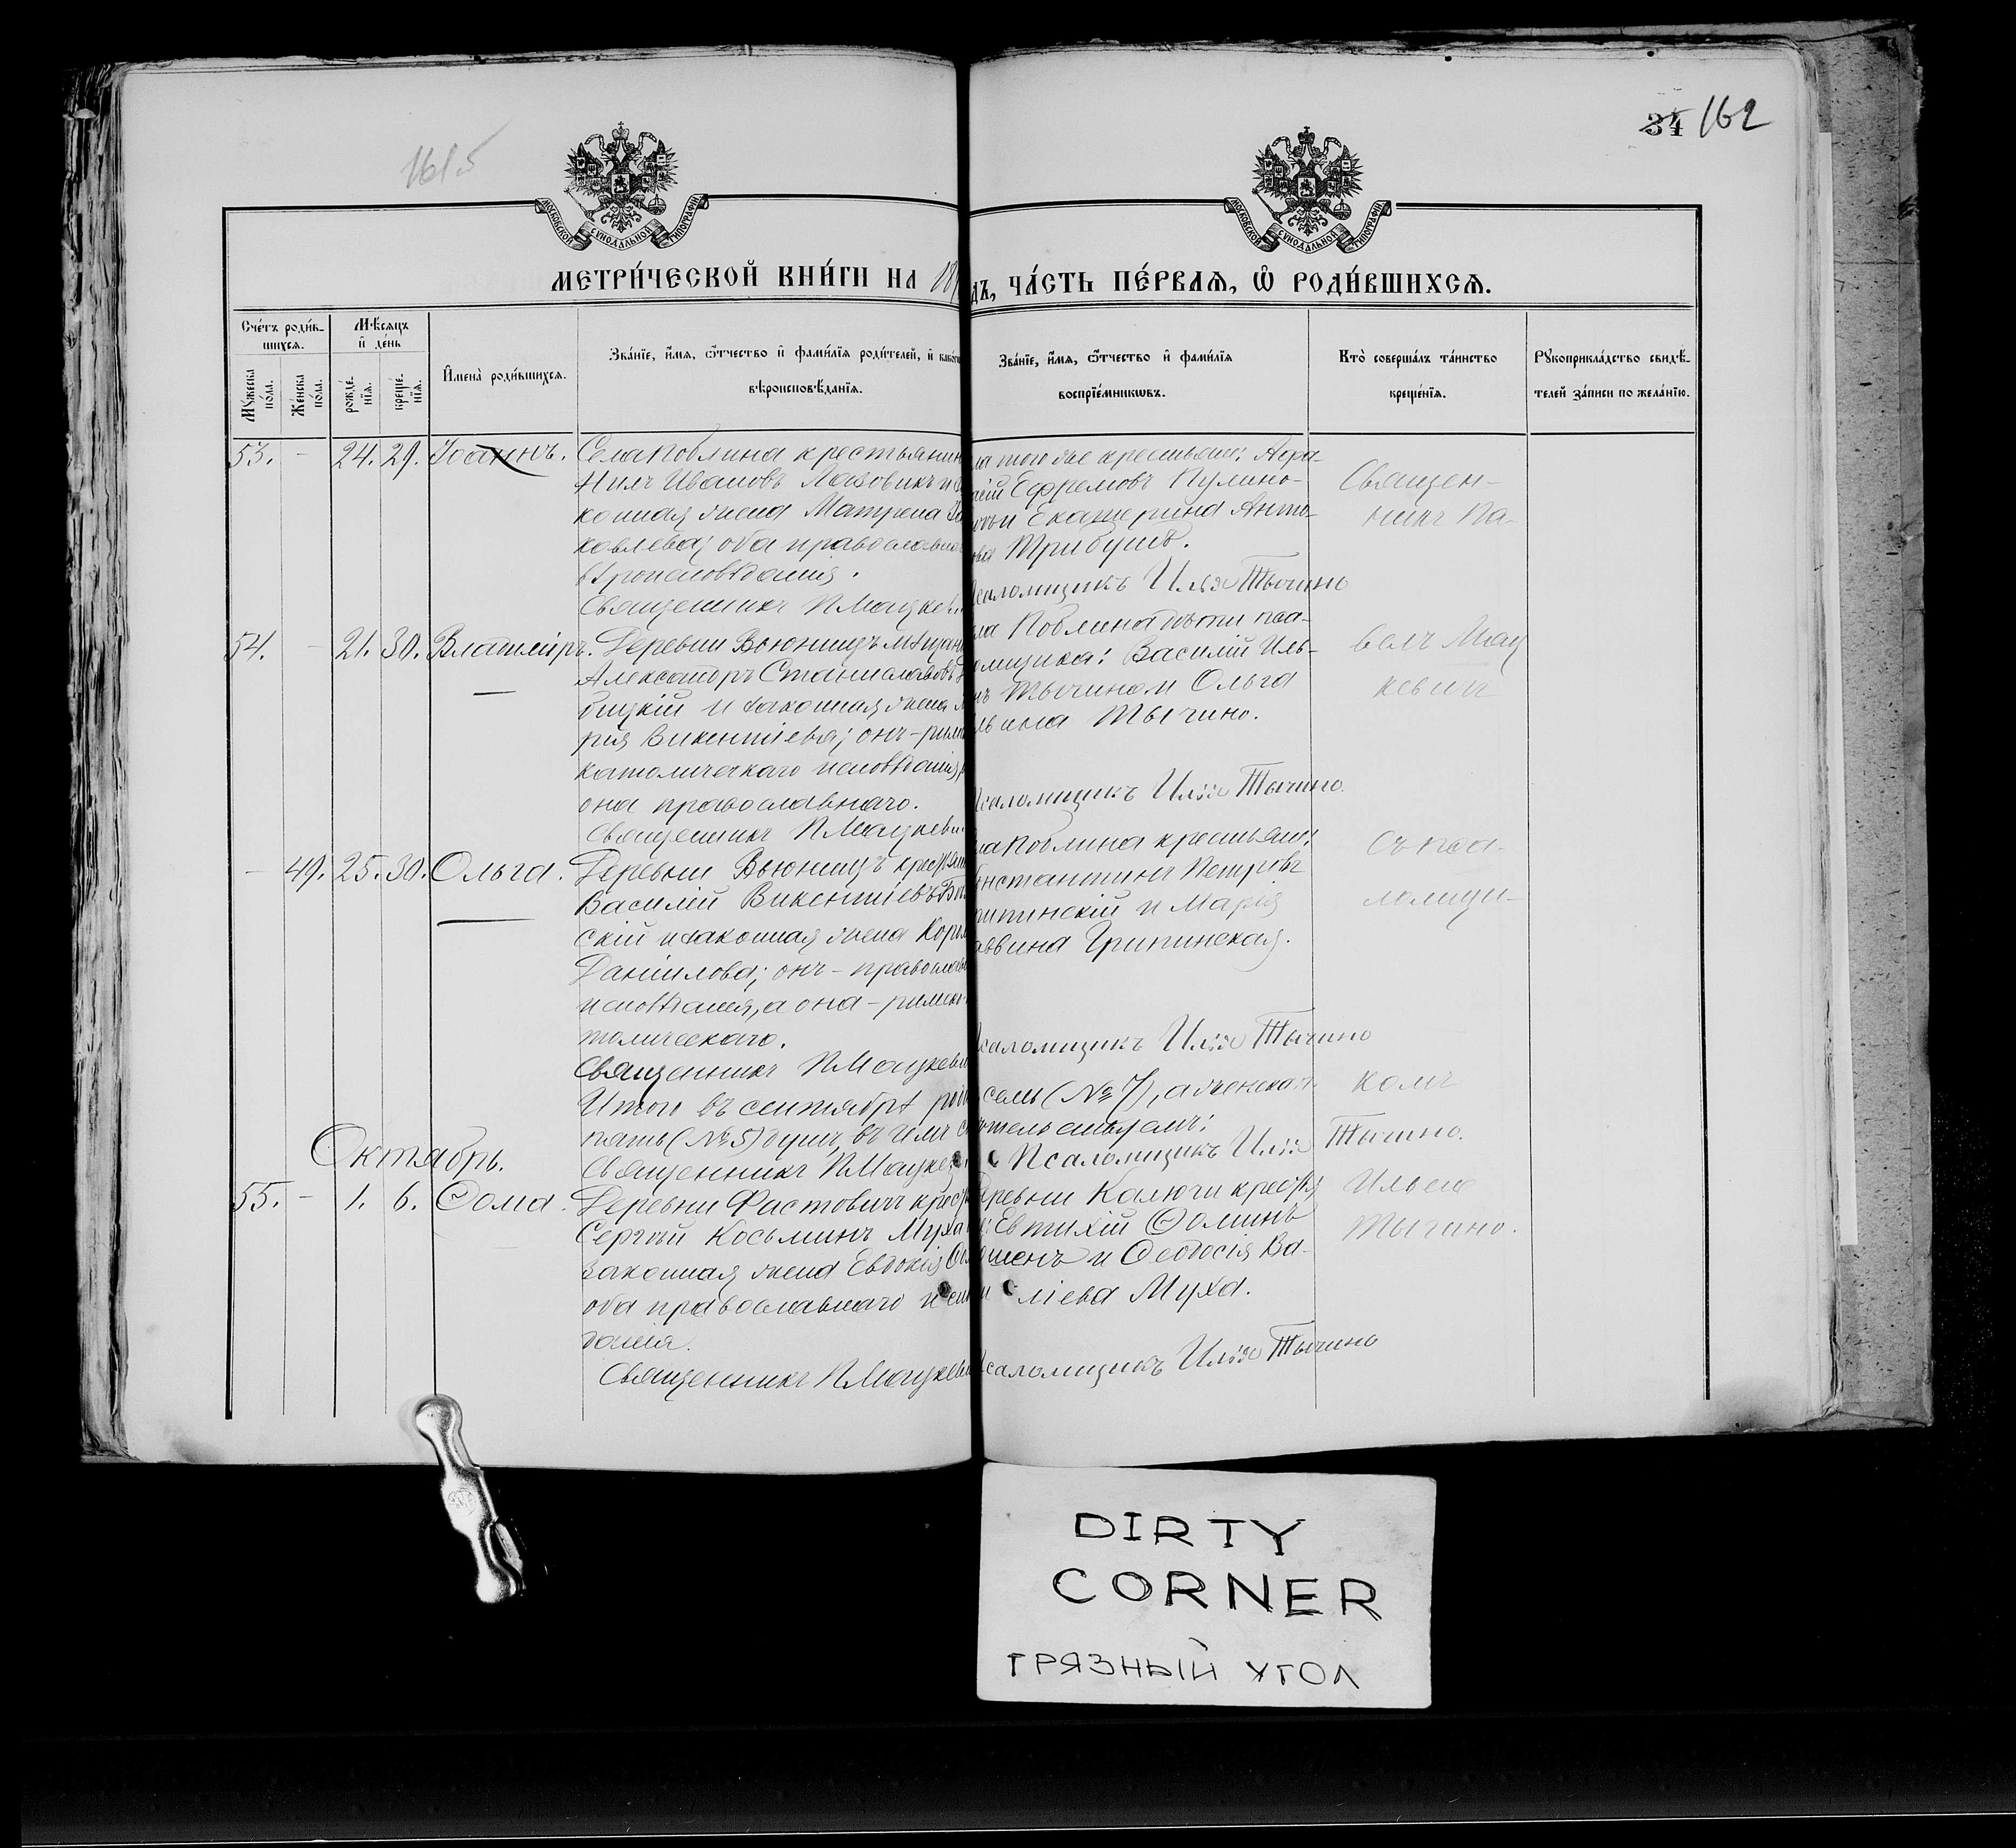 161 об
34 162
МОСКОВСКОЙ СУНОДАЛЬНОЙ ТИПОГРАФІИ
МОСКОВСКОЙ СУНОДАЛЬНОЙ ТИПОГРАФІИ
МЕТРИ́ЧЕСКОЙ КНИ́ГИ НА 18
ДЪ, ЧА́СТЬ ПЕ́РВАѦ, Ѡ РОДИ́ВШИХСѦ.
Сче́тъ роди́в-
шихся.
Мѣ́сяцъ
и де́нь
Му́жеска по́ла.
Же́нска по́ла.
рожде́-нїя.
креще́-нїя.
Имена̀ роди́вшихся.
Зва́нїе, и́мя, ѻ́тчество и фами́лїя роди́телей, и како́г
вѣроисповѣ́данїя.
Зва́нїе, и́мя, ѻ́тчество и фами́лїя
воспрїе́мниковъ.
Кто̀ соверша́лъ та́инство
креще́нїя.
Рукоприкла́дство свидѣ́-
телей за́писи по жела́нїю.
53. - 24. 29. Іоаннъ.
Села Поблина крестьянин
Нилъ Ивановъ Лазовикъ и
конная жена Матрена
ковлева; оба православн
вѣроисповѣданія.
Священникъ П Мацкев
ла того же крестьяне: Афа-
сій Ефремовъ Пулино-
Екатерина Анто-
ва Трибушъ.
саломщикъ Илья Тычино
Священ-
никъ Па-
54. - 21. 30. Владиміръ.
Деревни Вьюнищъ мѣщан
Александръ Станиславовъ
бицкій и законная жена
рія Викентіева; онъ-рим
католическаго исповѣданія,
она православнаго.
Священникъ П Мацкеви
ла Поблина дѣти пса-
омщика: Василій Иль-
нъ Тычино и Ольга
льина Тычино.
саломщикъ Илья Тычино.
велъ Мац
кевичъ
- 49. 25. 30. Ольга.
Деревни Вьюнищъ крестьян
Василій Викентіевъ
скій и законная жена
Даніилова; онъ-православ
исповѣданія, а она-римско-
толическаго.
Священникъ П Мацкеви
ла Поблина крестьяне:
нстантинъ Петровъ
рипинскій и Марія
Грипинская.
саломщикъ Илья Тычино
съ пса-
ломщи-
Итого въ сентябрѣ
пять (№ 5) душъ, въ чемъ с
Священникъ П Мацке
семь (№ 7), а женска
тельствуемъ:
Псаломщикъ Илья Тычино.
комъ
Октябрь.
55. - 1. 6. Ѳома.
Деревни Фастовичъ крест
Сергѣй Косьминъ Муха
законная жена Евдокія
оба православнаго испо
данія.
Священникъ П Мацкеви
ревни Калюги крестья
Евтихій Ѳоминъ
шенъ и Ѳеодосія Ва-
ліева Муха.
саломщикъ Илья Тычино
Ильею
Тычино.
DIRTY
CORNER
ГРЯЗНЫЙ УГОЛ